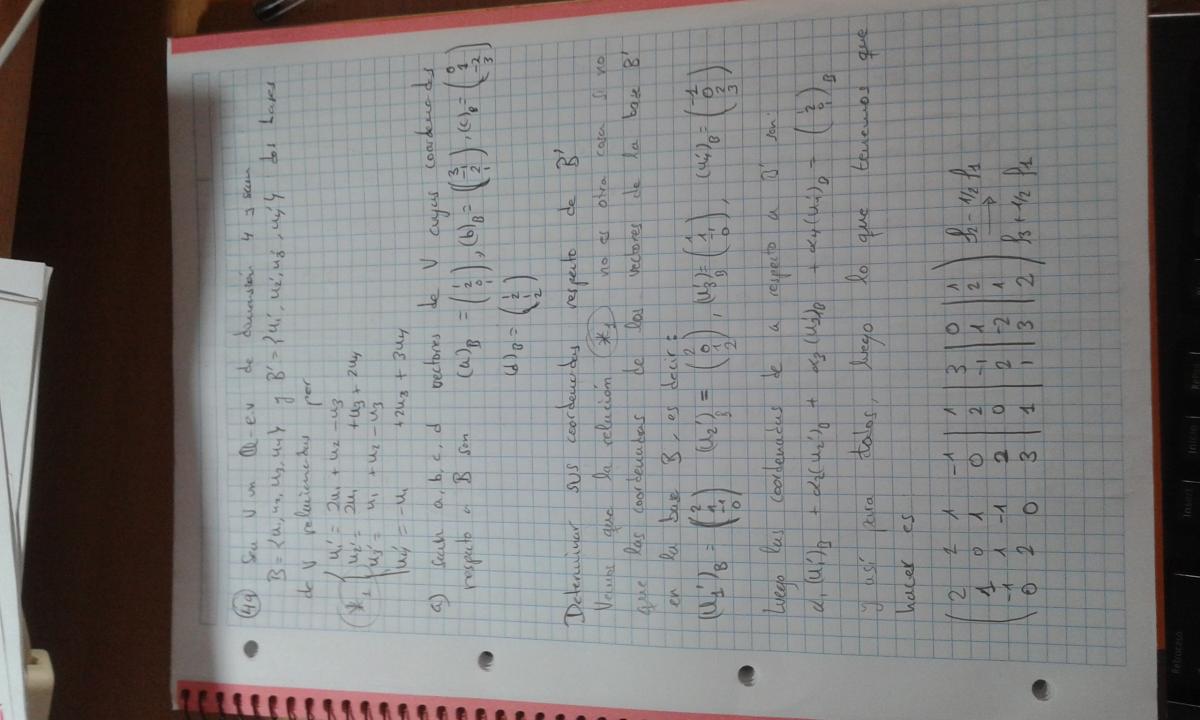 44 Sea V un Q-e.v de dimensión 4 y sean
B = {u1, u2, u3, u4} y B' = {u1', u2', u3', u4'} dos bases
de V relacionadas por
*1 { u1' = 2u1 + u2 - u3
u2' = 2u1 + u3 + 2u4
u3' = u1 + u2 - u3
u4' = -u1 + 2u3 + 3u4
a) sean a, b, c, d vectores de V cuyas coordenadas
respecto a B son (a)B = (1 2 0 1), (b)B = (3 -1 2 1), (c)B = (0 1 -2 3)
(d)B = (1 2 1 2)
Determinar sus coordenadas respecto de B'
Vemos que la relación *1 no es otra cosa si no
que las coordenadas de los vectores de la base B'
en la base B, es decir:
(u1')B = (2 1 -1 0) (u2')B = (2 0 1 2), (u3')B = (1 1 -1 0), (u4')B = (-1 0 2 3)
luego las coordenadas de a respecto a B' son:
α1(u1')B + α2(u2')B + α3(u3')B + α4(u4')B = (1 2 0 1)B
y así para todos, luego lo que tenemos que
hacer es
( 2 2 1 -1 | 1 | 3 | 0 | 1 )
1 0 1 0 | 2 | -1 | 1 | 2 f2 - 1/2 f1
-1 1 -1 2 | 0 | 2 | -2 | 1 →
0 2 0 3 | 1 | 1 | 3 | 2 f3 + 1/2 f1
Retroceso
Insert